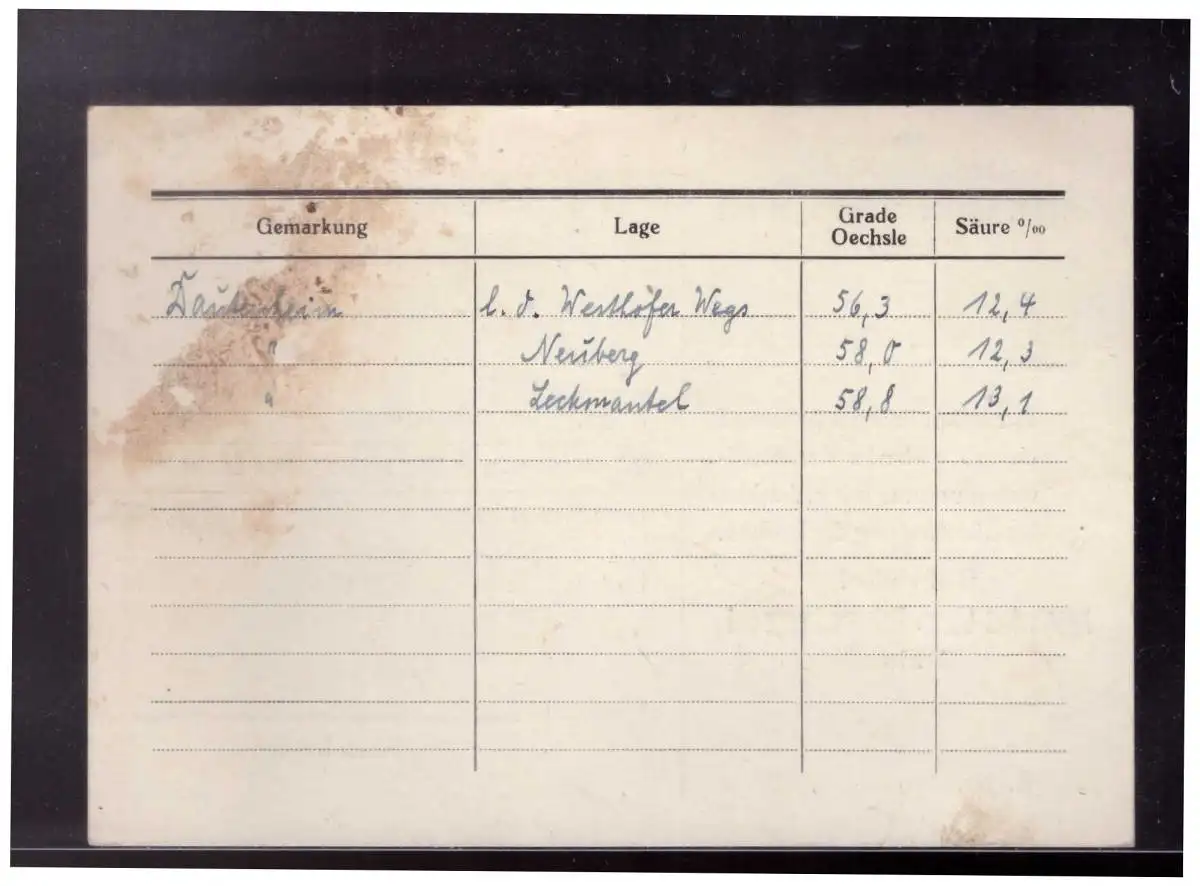 Gemarkung Lage Grade Oechsle Säure ⁰/₀₀
Dautenheim l. d. Westhofer Wegs 56,3 12,4
" Neuberg 58,0 12,3
" Leckmantel 58,8 13,1